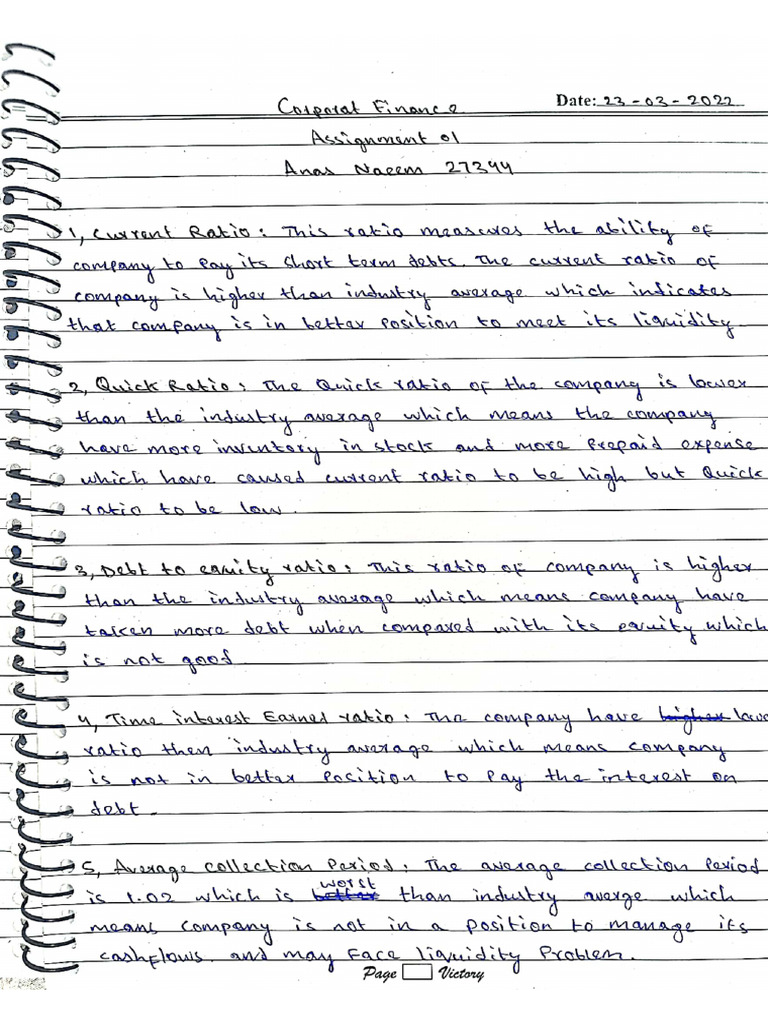 Corporat Finance Date: 23-03-2022
Assignment 01
Anas Naeem 27394
1, Current Ratio: This ratio measures the ability of
company to pay its short term debts. The current ratio of
company is higher than industry average which indicates
that company is in better position to meet its liquidity
2, Quick Ratio: The Quick ratio of the company is lower
than the industry average which means the company
have more inventory in stock and more prepaid expense
which have caused current ratio to be high but Quick
ratio to be low.
3, Debt to equity ratio: This ratio of company is higher
than the industry average which means company have
taken more debt when compared with its equity which
is not good
4, Time interest Earned ratio: The company have higher lowe
ratio then industry average which means company
is not in better position to pay the interest on
debt.
5, Average collection Period: The average collection Period
worst
is 1.02 which is better than industry averge which
means company is not in a position to manage its
cashflows. and may face liquidity Problem.
Page Victory